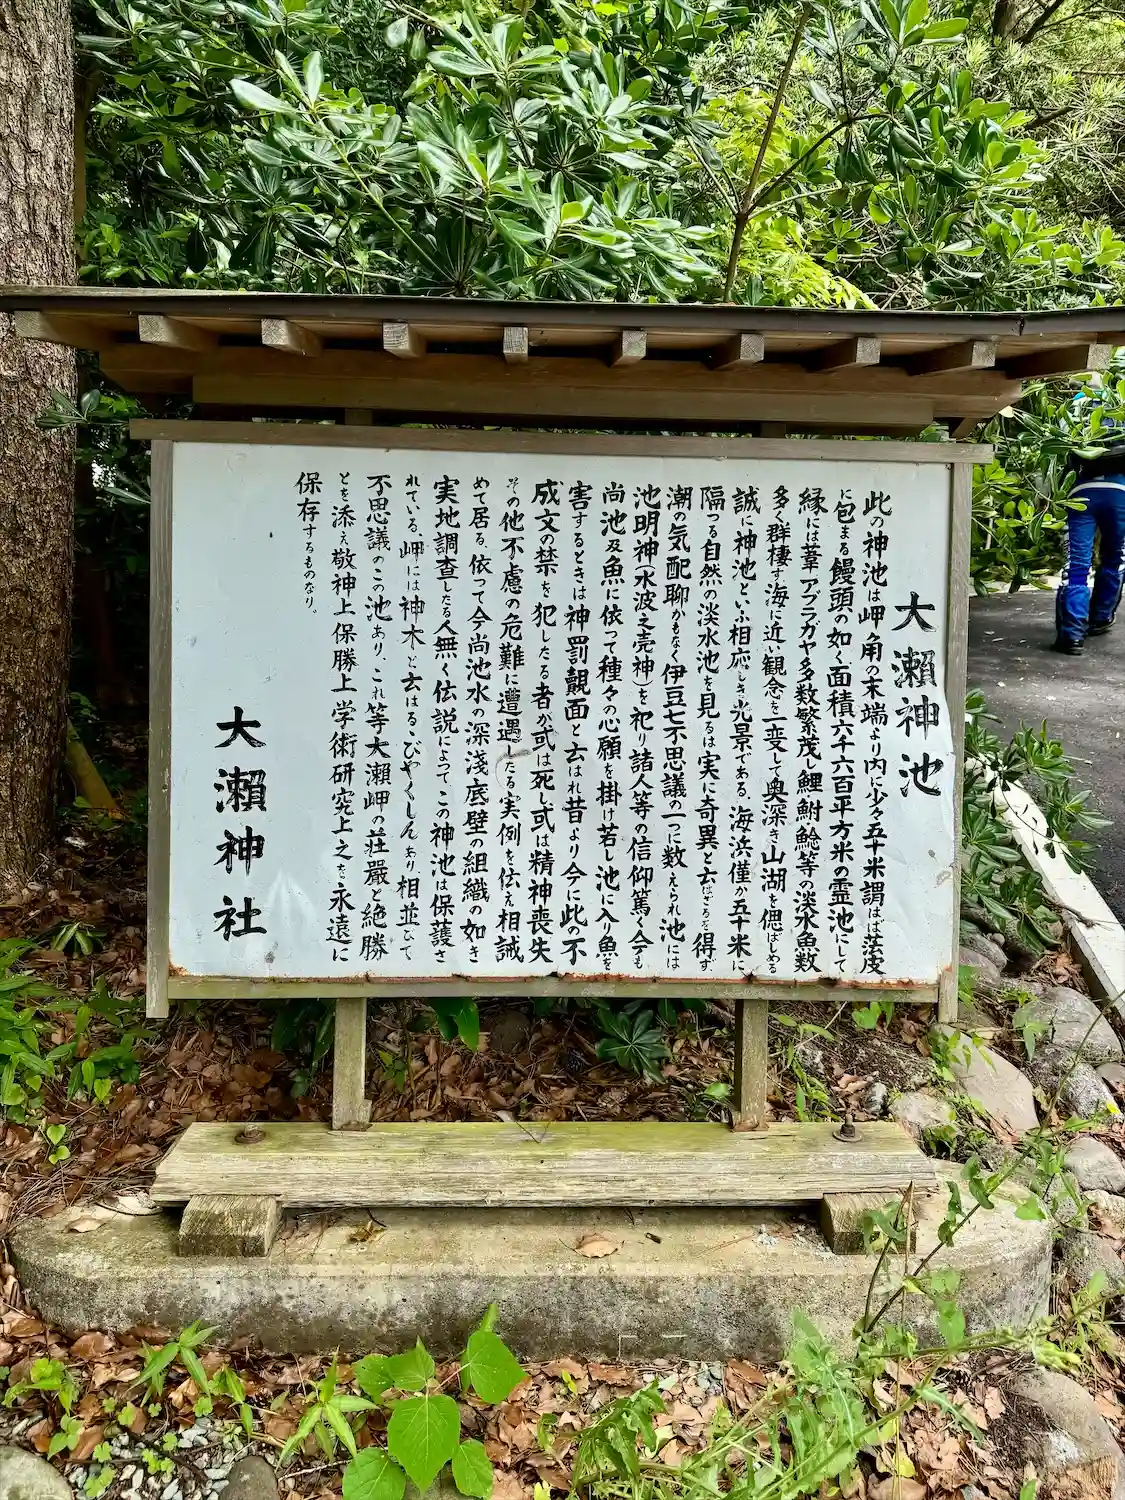 大瀬神池
此の神池は岬角の末端より内に少々五十米謂はば薄皮
に包まる饅頭の如く面積六千六百平方米の霊池にして
縁には葦アブラガヤ多数繁茂し鯉鮒鯰等の淡水魚数
多く群棲す海に近い観念を一変して奥深き山湖を偲ばしめる
誠に神池といふ相応しき光景である、海浜僅か五十米に
隔つる自然の淡水池を見るは実に奇異と云はざるを得ず
潮の気配聊かもなく伊豆七不思議の一つに数えられ池には
池明神(水波之売神)を祀り諸人等の信仰篤く今も
尚池及魚に依って種々の心願を掛け若し池に入り魚を
害するときは神罰覿面と云はれ昔より今に此の不
成文の禁を犯したる者が或は死し或は精神喪失
その他不慮の危難に遭遇したる実例を伝え相誡
めて居る、依って今尚池水の深浅底壁の組織の如き
実地調査したる人無く伝説によって、この神池は保護さ
れている、岬には神木と云はる、びゃくしんあり相並びて
不思議のこの池あり、これ等大瀬岬の荘嚴と絶勝
とを添え敬神上保勝上学術研究上之を永遠に
保存するものなり、
大瀬神社